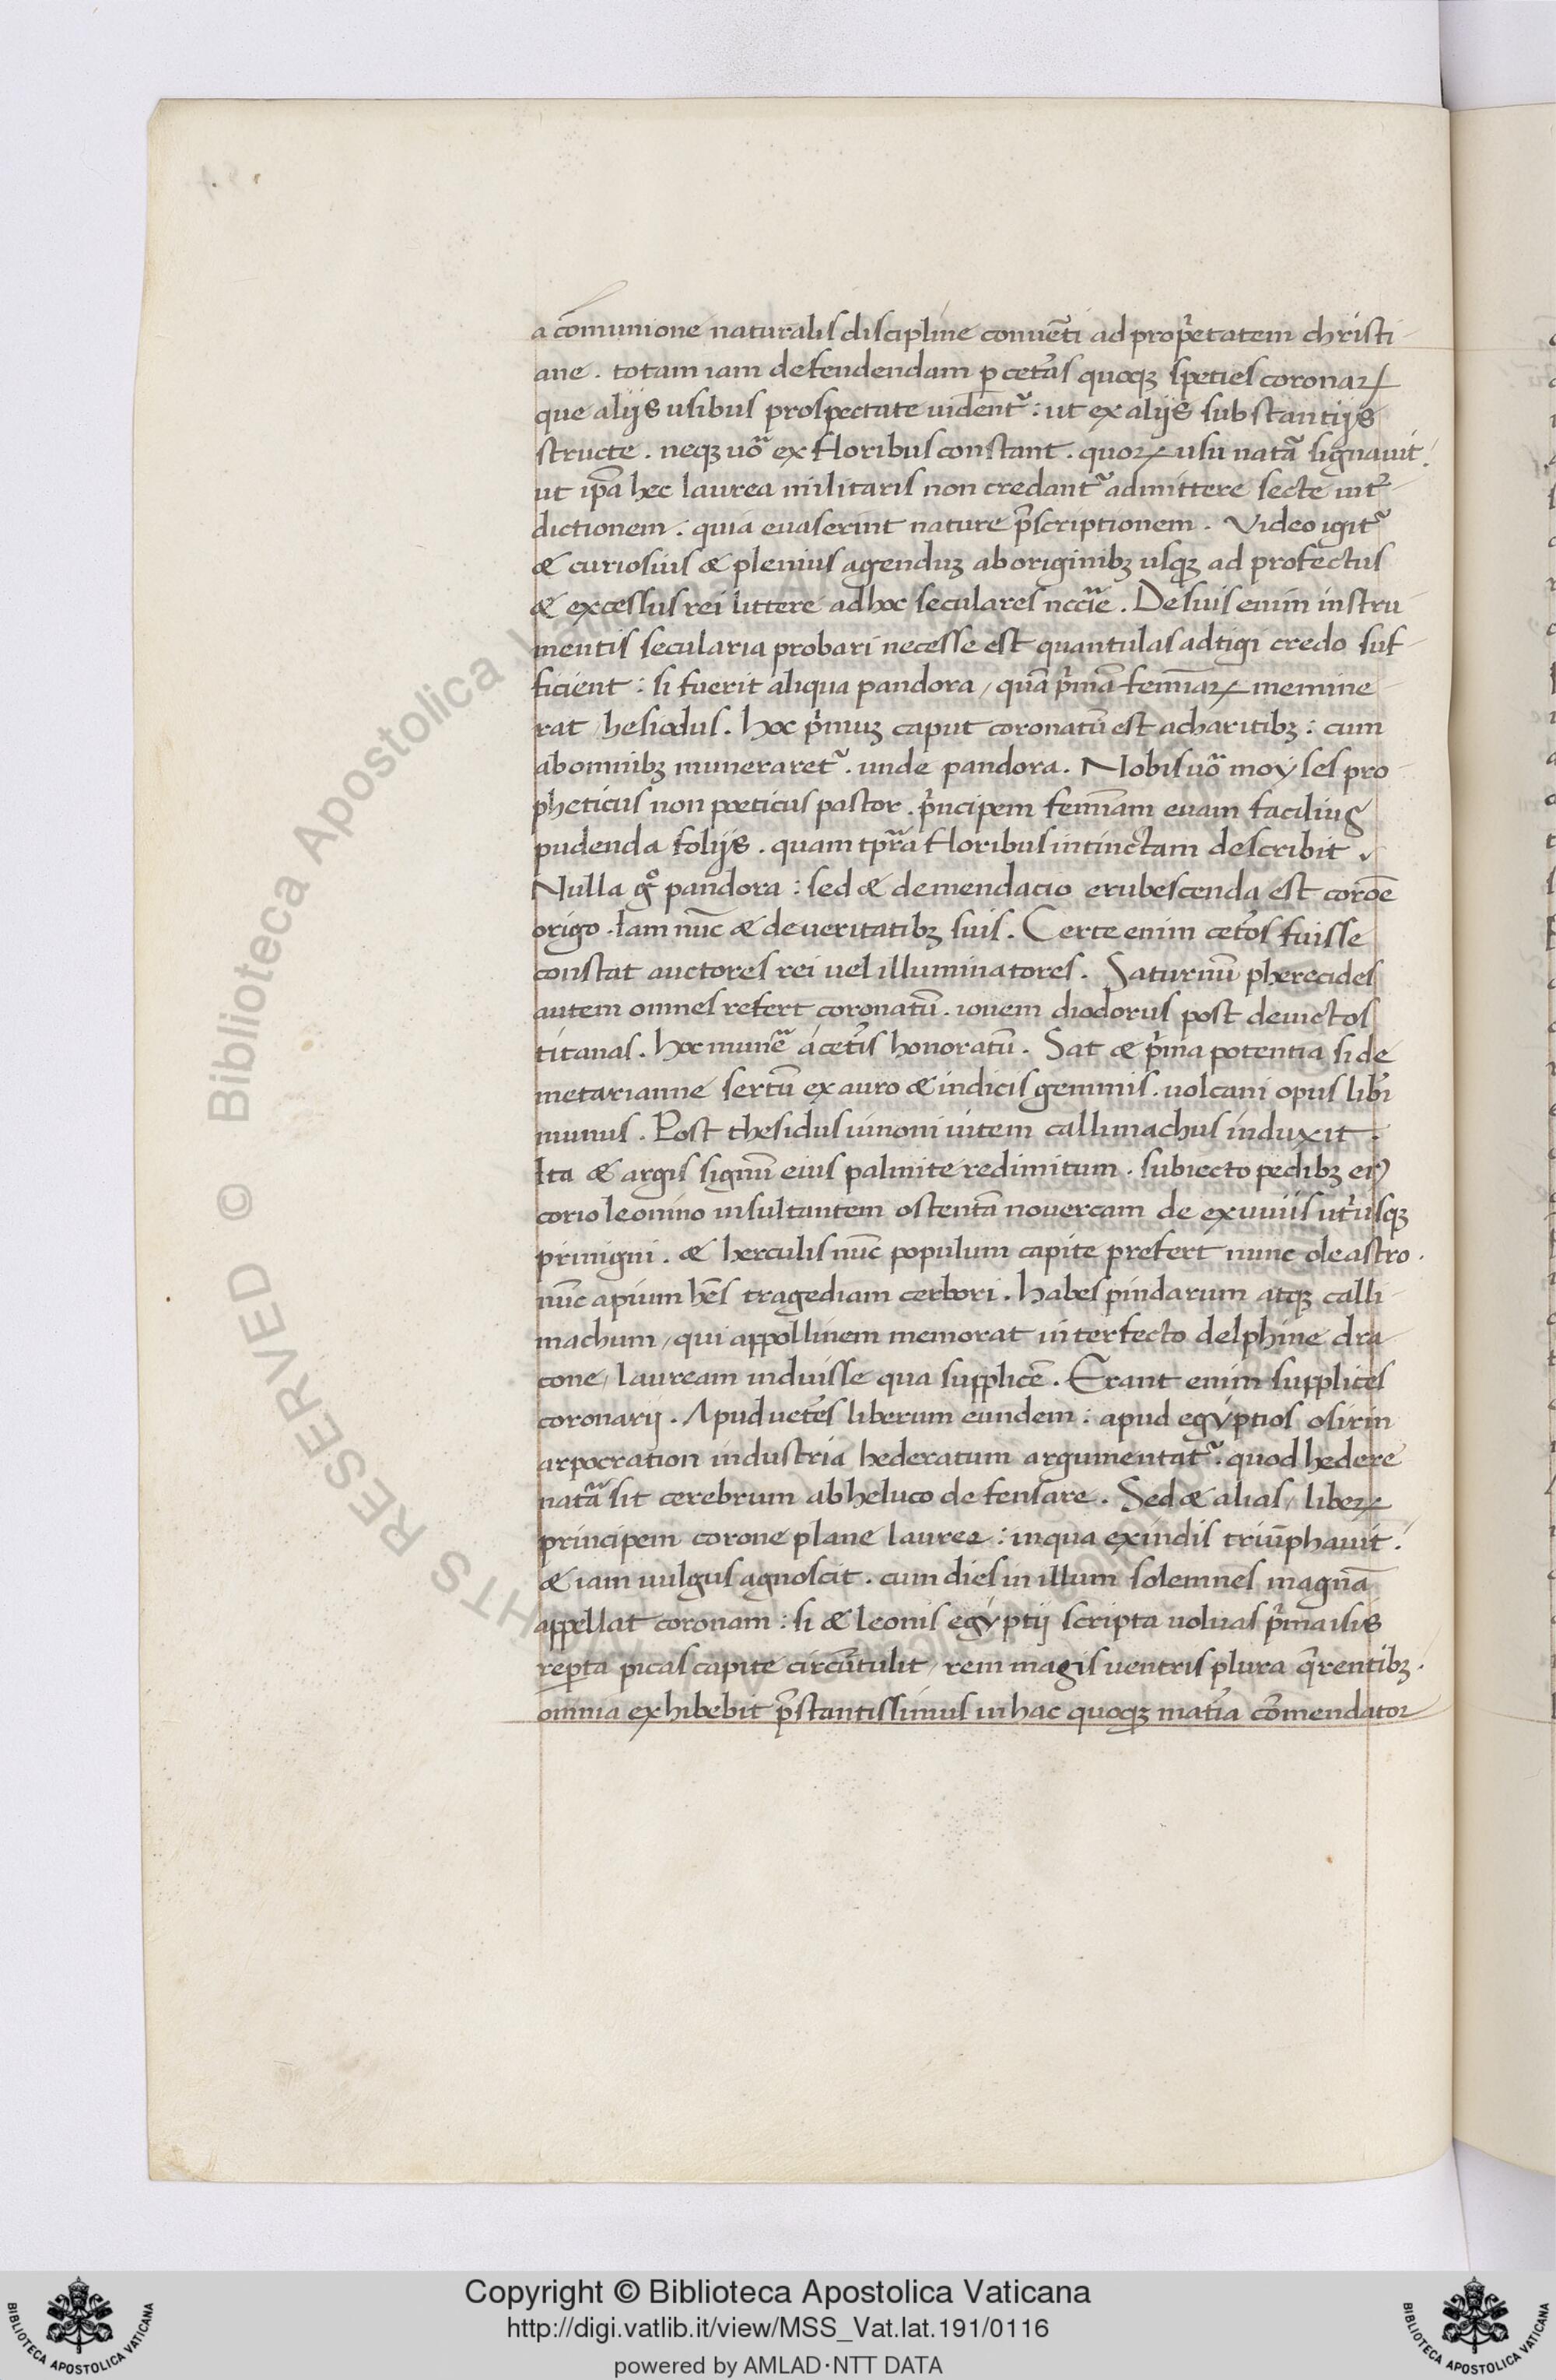 a cōmunione naturalis discipline conuēti ad prop̄etatem christi-
ane . totam iam defendendam ꝑ cet̄as quoqꝫ speties coronaꝝ
que alijs usibus prospectate uident᷑ : ut ex alijs substantijs
structe . neqꝫ uō ex floribus constant . quoꝝ usū natā signauit .
ut ip̄a hec laurea militaris non credant᷑ admittere secte int̄-
dictionem . quia euaserint nature p̄scriptionem . Video igit᷑
& curiosius & plenius agenduꝫ ab originibꝫ usqꝫ ad profectus
& excessus rei littere ad hoc seculares nccīe . De suis enim instru-
mentis secularia probari necesse est quantulas adtigi credo suf-
ficient : si fuerit aliqua pandora / quā p̄mā femīaꝝ memine-
rat hesiodus . hoc p̄muꝫ caput coronatū est a charitibꝫ : cum
ab omnibꝫ muneraret᷑ . unde pandora . Nobis uō moyses pro-
pheticus non poeticus pastor . p̄ncipem femīam euam facilius
pudenda folijs . quam tp̄ra floribus intinctam describit .
Nulla gͦ pandora : sed & de mendacio erubescenda est corōe
origo . Iam nūc & de ueritatibꝫ suis . Certe enim cet̄os fuisse
constat auctores rei uel illuminatores . Saturnū pherecides
autem omnes refert coronatū . iouem diodorus post deuictos
titanas . hoc munē a cet̄is honoratū . Sat & p̄ma potentia si de
metarianne sertū ex auro & indicis gemmis . uolcani opus libī
munus . Post thesidus iunoni uitem callimachus induxit .
Ita & argis signū eius palmite redimitum . subiecto pedibꝫ eiꝰ
corio leonino insultantem ostentā nouercam de exuuiis ut̄iusqꝫ
primigni . & herculis nūc populum capite prefert nunc oleastro .
nūc apium hēs tragediam cerbori . habes pindarum atqꝫ calli-
machum / qui appollinem memorat interfecto delphine dra-
cone / lauream induisse qua supplicē . Erant enim supplices
coronarij . Apud uet̄es liberum eundem : apud egyptios osirin
arpocration industria hederatum argumentat᷑ . quod hedere
natā sit cerebrum ab heluco defensare . Sed & alias / libeꝝ
principem corone plane lauree : in qua ex indis triūphauit .
& iam uulgus agnoscit . cum dies in illum solemnes magnā
appellat coronam : si & leonis egyptij scripta uoluas p̄ma isis
reꝑta picas capite circūtulit / rem magis uentris plura q̄rentibꝫ .
omnia exhibebit p̄stantissimus in hac quoqꝫ mat̄ia cōmendator
© Biblioteca Apostolica Vaticana
RIGHTS RESERVED
Copyright © Biblioteca Apostolica Vaticana
http://digi.vatlib.it/view/MSS_Vat.lat.191/0116
powered by AMLAD·NTT DATA
BIBLIOTECA APOSTOLICA VATICANA
BIBLIOTECA APOSTOLICA VATICANA